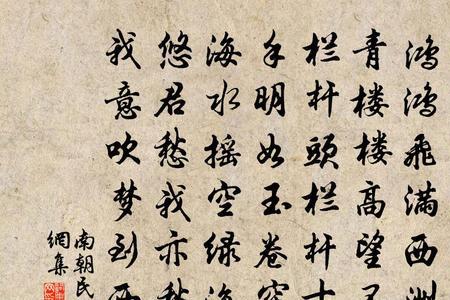 鸿鸿飛滿西洲
青楼楼高望
栏杆頭栏杆十
手明如玉卷
海水摇空绿海
悠君愁我亦愁
我意吹梦到西
南朝民
網集